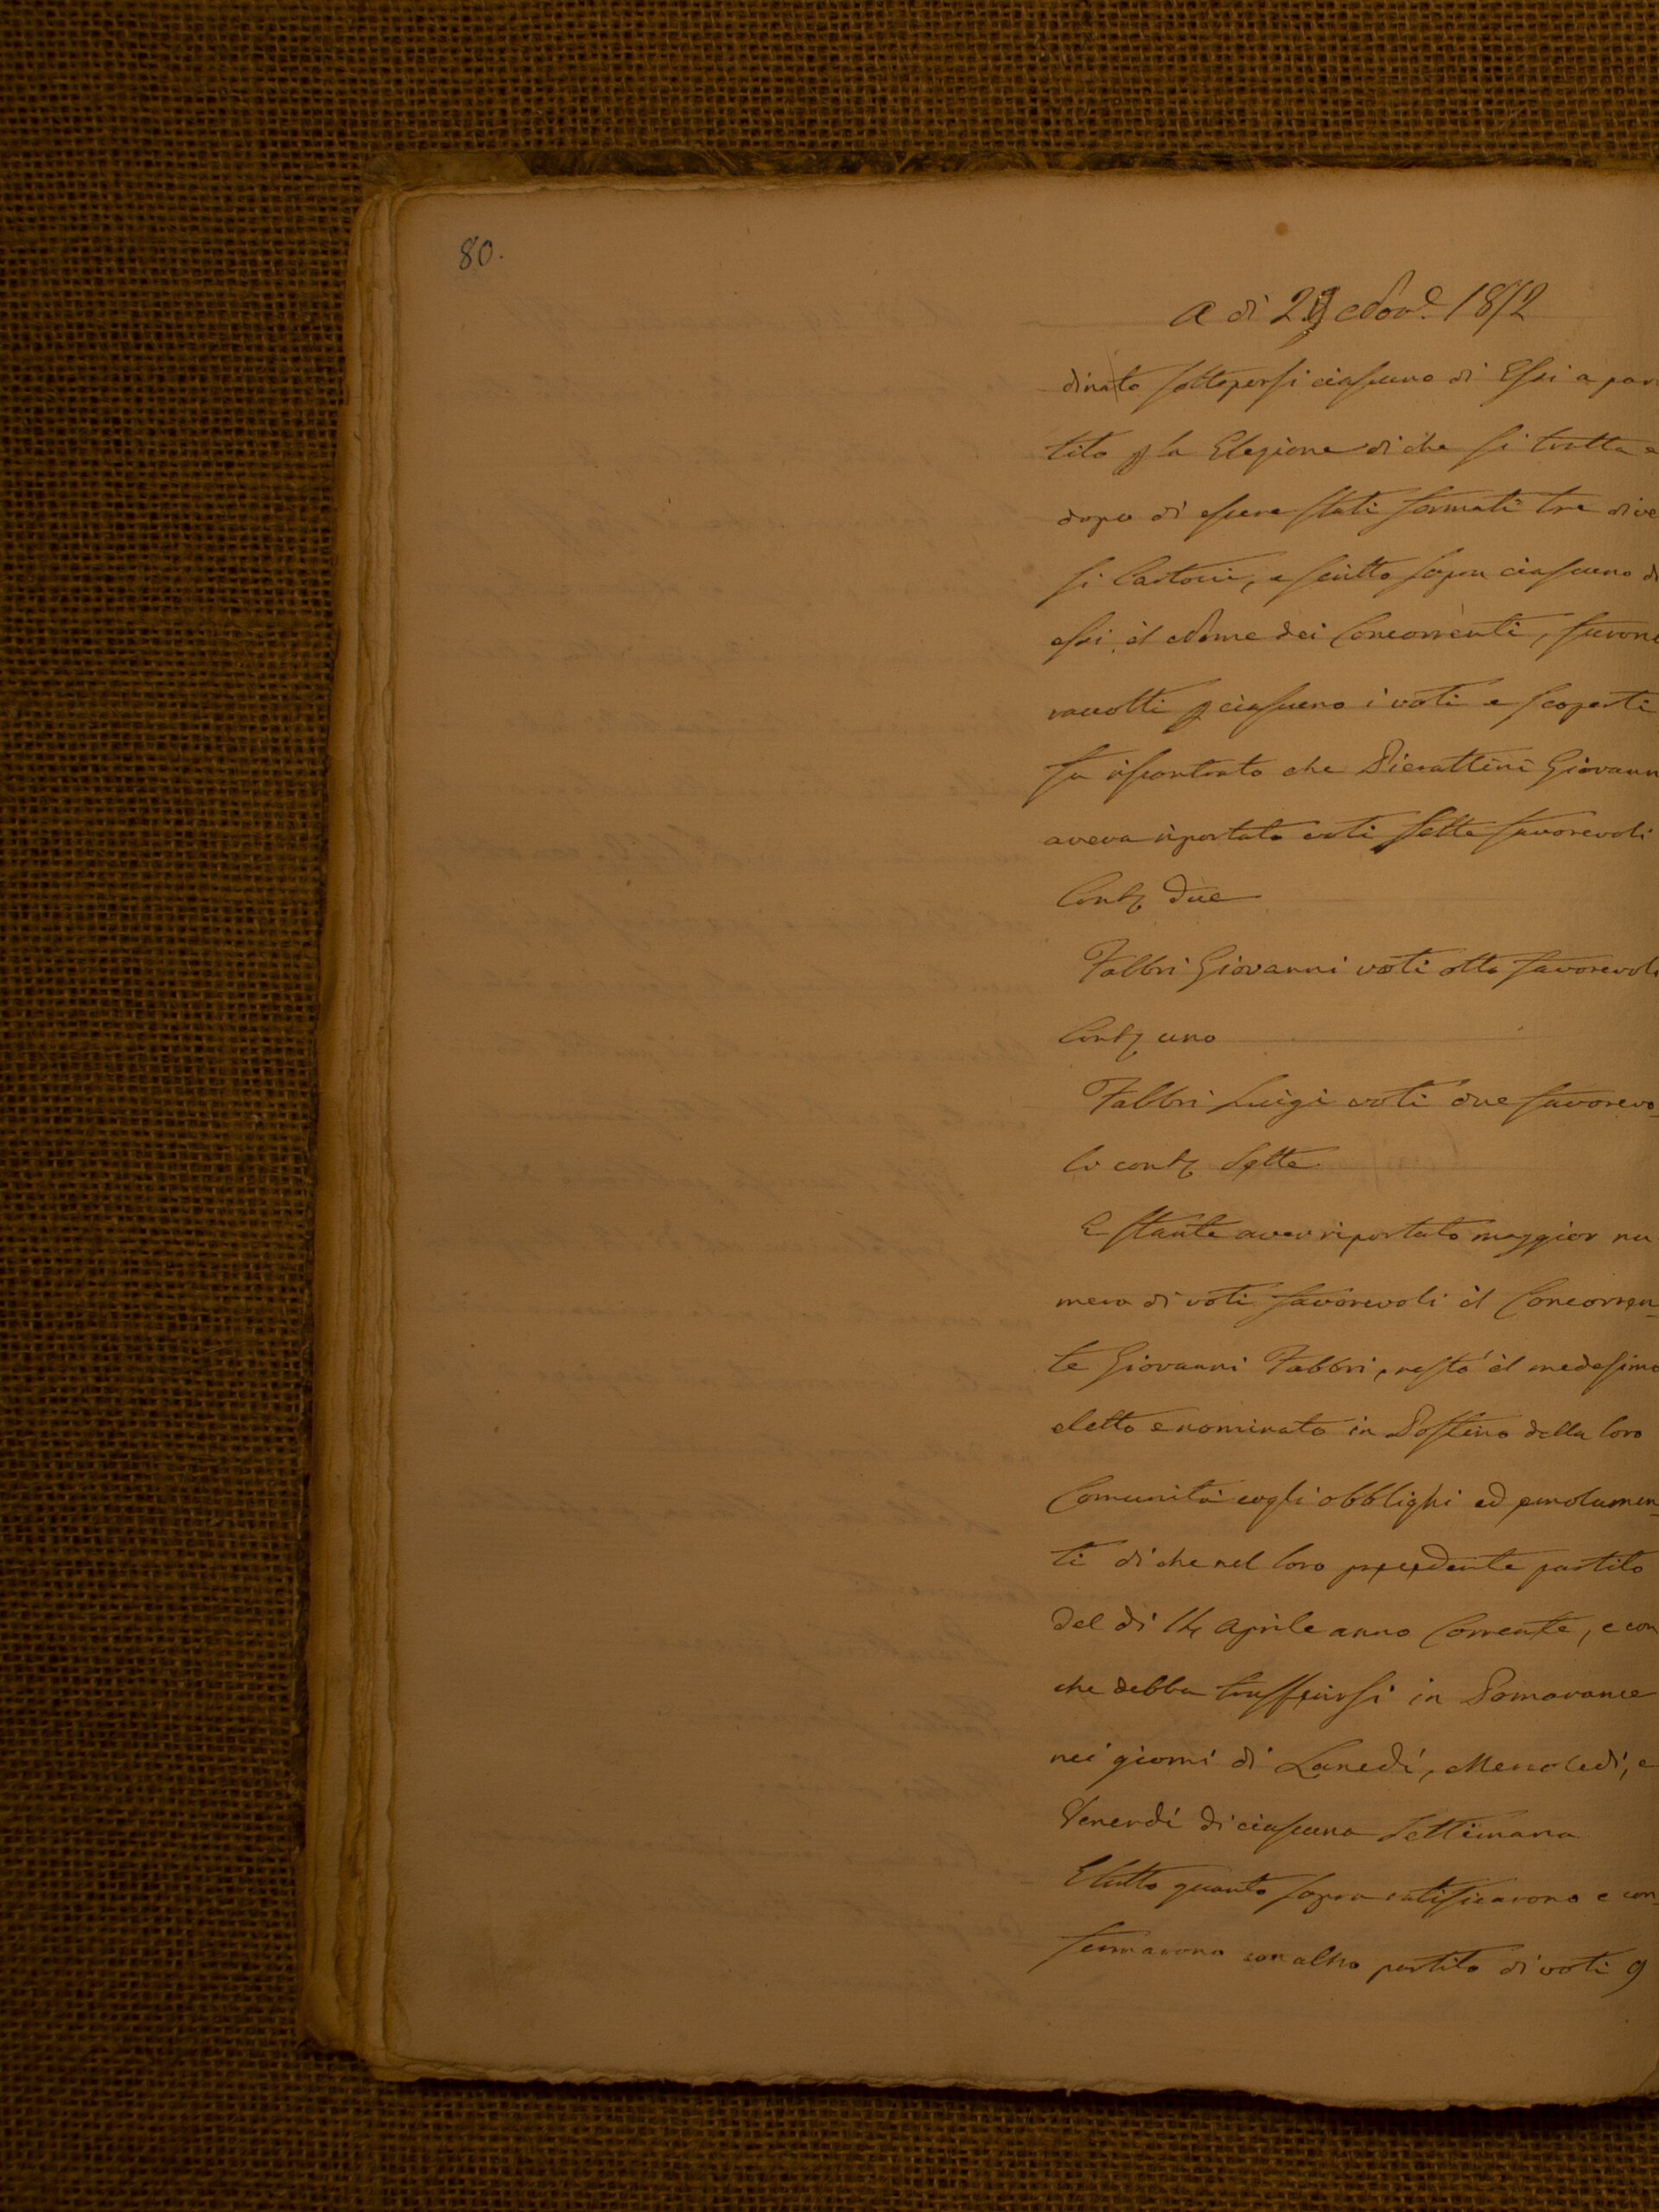 80.
A dì 29 Nov.e 1852
dinato sottopersi ciascuno di Essi a par
tito p la Elezione di che si tratta e
dopo di essere stati formati tre dive
si Cartocci, e scritto sopra ciascuno d
essi il Nome dei Concorrenti, furono
raccolti p ciascuno i voti e scoperti
fu riscontrato che Pierattini Giovann
aveva riportato voti Sette favorevoli
Contr due
Fabbri Giovanni voti otto favorevoli
Contr uno
Fabbri Luigi voti due favorevo-
li contr Sette
E stante aver riportato maggior nu
mero di voti favorevoli il Concorren-
te Giovanni Fabbri, restò il medesimo
eletto e nominato in Postino della loro
Comunità cogli obblighi ed emolumen-
ti di che nel loro precedente partito
del dì 14 Aprile anno Corrente, e con
che debba trasferirsi in Pomarance
nei giorni di Lunedì, Mercoledì, e
Venerdì di ciascuna Settimana
E tutto quanto sopra ratificarono e con-
fermarono con altro partito di voti 9